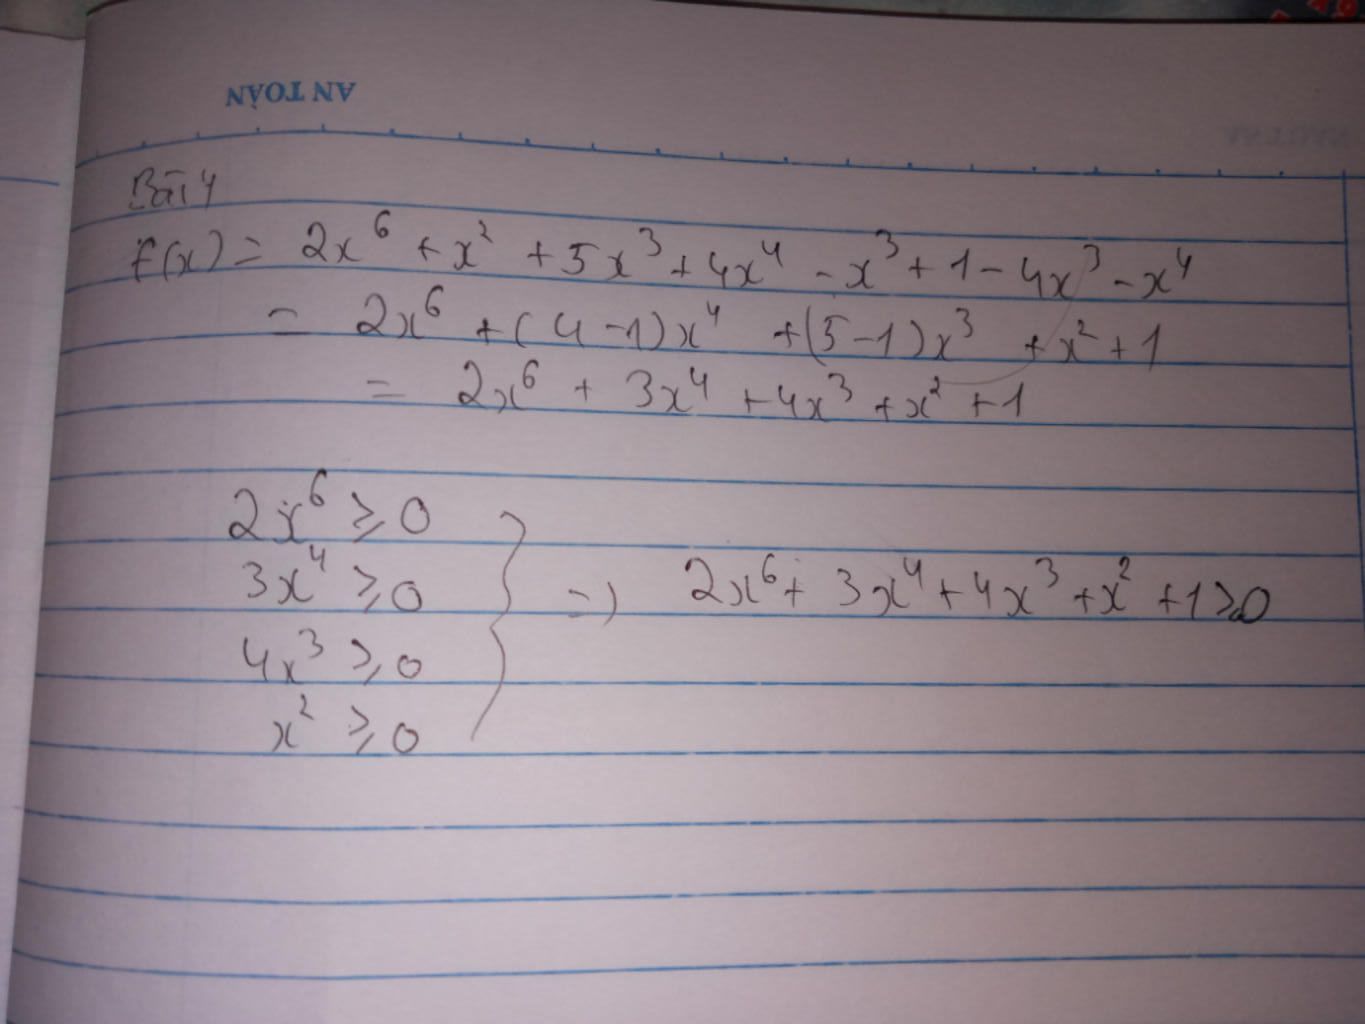 AN TOÀN
Bài 4
f(x) = 2x⁶ + x² + 5x³ + 4x⁴ - x³ + 1 - 4x³ - x⁴
= 2x⁶ + (4 - 1)x⁴ + (5 - 1)x³ + x² + 1
= 2x⁶ + 3x⁴ + 4x³ + x² + 1
2x⁶ ≥ 0
3x⁴ ≥ 0
=) 2x⁶ + 3x⁴ + 4x³ + x² + 1 ≥ 0
4x³ ≥ 0
x² ≥ 0